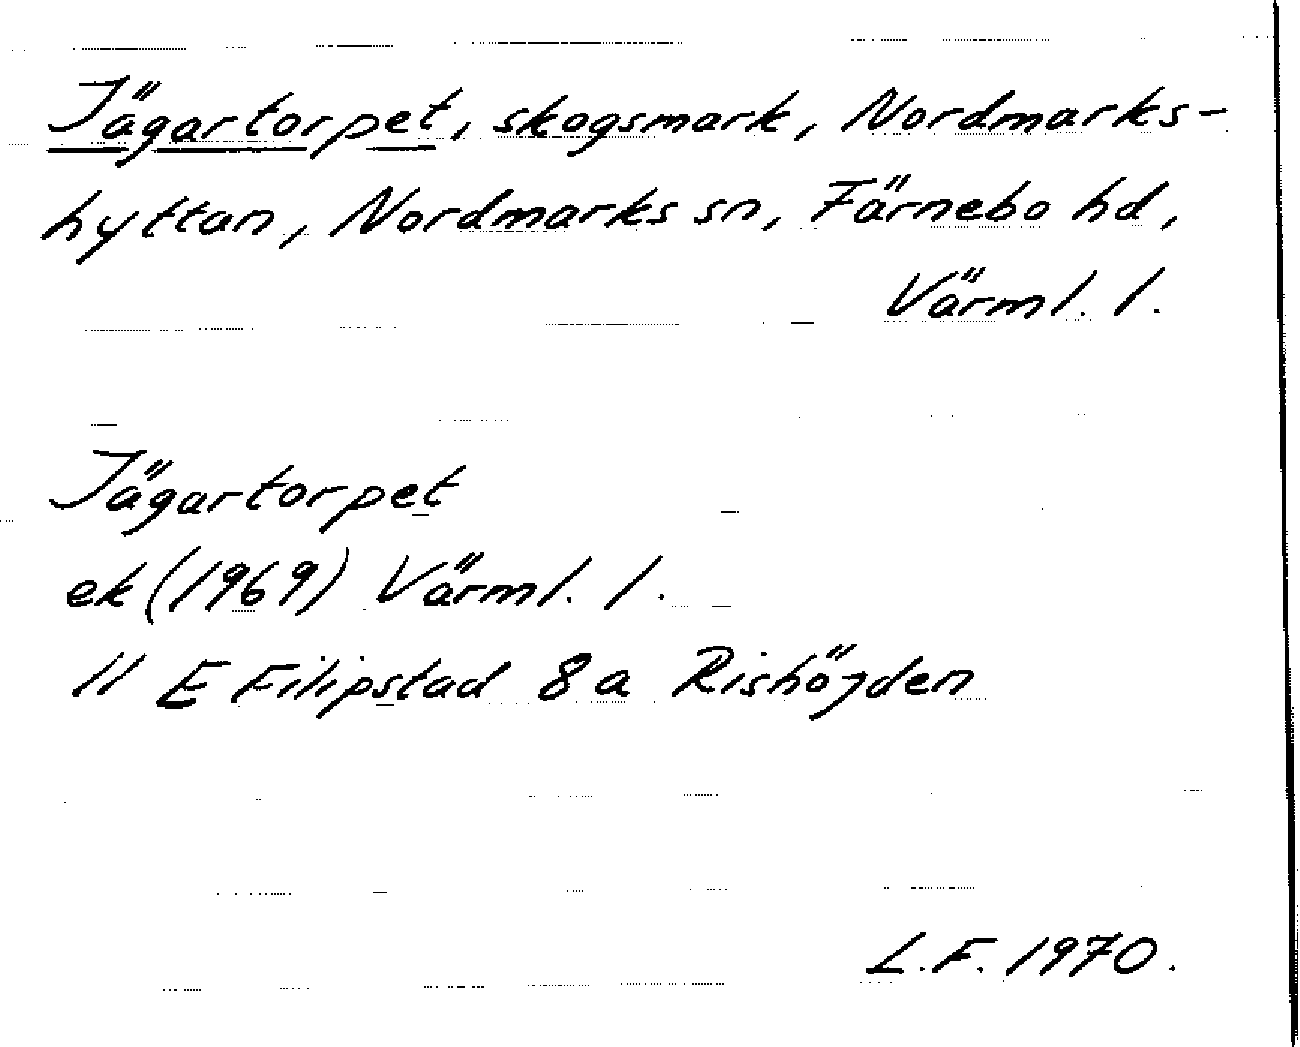 Jägartorpet, skogsmark, Nordmarks-
hyttan, Nordmarks sn, Färnebo hd,
Värml. l.
Jägartorpet
ek (1969) Värml. l.
11 E Filipstad 8 a Rishöjden
L.F. 1970.